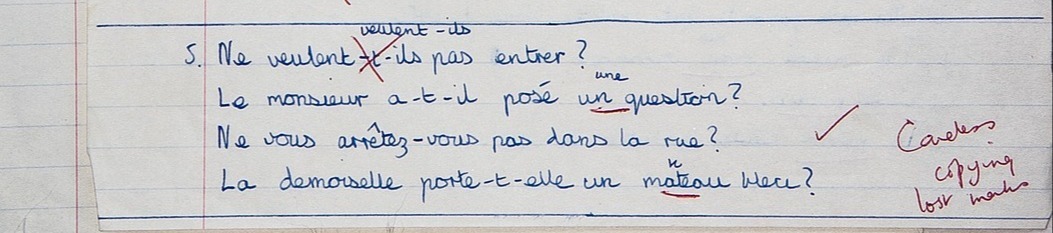 veulent-ils
5. Ne veulent-t-ils pas entrer?
une
Le monsieur a-t-il posé un question?
Ne vous arrêtez-vous pas dans la rue?
n
La demoiselle porte-t-elle un mateau bleu?
Careless
copying
lost marks